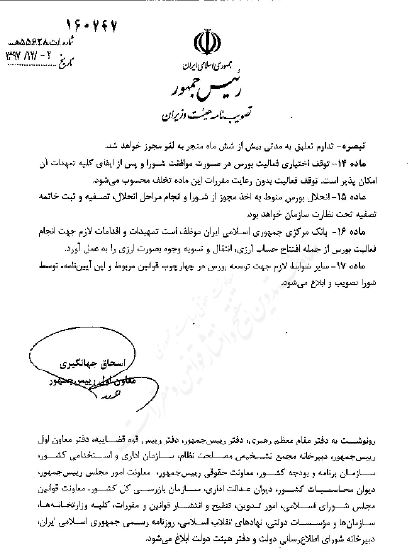 ۱۶۰۷۶۷
شماره /ت۵۵۶۲۸هـ
تاریخ ۱۳۹۷/۱۲/۰۲
جمهوری اسلامی ایران
رئیس جمهور
تصویب نامه هیئت وزیران
تبصره- تداوم تعلیق به مدتی بیش از شش ماه منجر به لغو مجوز خواهد شد.
ماده ۱۴- توقف اختیاری فعالیت بورس در صورت موافقت شورا و پس از ایفای کلیه تعهدات آن
امکان پذیر است. توقف فعالیت بدون رعایت مقررات این ماده تخلف محسوب می‌شود.
ماده ۱۵- انحلال بورس منوط به اخذ مجوز از شورا و انجام مراحل انحلال، تصفیه و ثبت خاتمه
تصفیه تحت نظارت سازمان خواهد بود.
ماده ۱۶- بانک مرکزی جمهوری اسلامی ایران موظف است تمهیدات و اقدامات لازم جهت انجام
فعالیت بورس از جمله افتتاح حساب ارزی، انتقال و تسویه وجوه بصورت ارزی را به عمل آورد.
ماده ۱۷- سایر ضوابط لازم جهت توسعه بورس در چهارچوب قوانین مربوط و این آیین‌نامه، توسط
شورا تصویب و ابلاغ می‌شود.
اسحاق جهانگیری
معاون اول رییس‌جمهور
رونوشت به دفتر مقام معظم رهبری، دفتر رییس‌جمهور، دفتر رییس قوه قضاییه، دفتر معاون اول
رییس‌جمهور، دبیرخانه مجمع تشخیص مصلحت نظام، سازمان اداری و استخدامی کشور،
سازمان برنامه و بودجه کشور، معاونت حقوقی رییس‌جمهور، معاونت امور مجلس رییس‌جمهور،
دیوان محاسبات کشور، دیوان عدالت اداری، سازمان بازرسی کل کشور، معاونت قوانین
مجلس شورای اسلامی، امور تدوین، تنقیح و انتشار قوانین و مقررات، کلیه وزارتخانه‌ها،
سازمان‌ها و مؤسسات دولتی، نهادهای انقلاب اسلامی، روزنامه رسمی جمهوری اسلامی ایران،
دبیرخانه شورای اطلاع‌رسانی دولت و دفتر هیئت دولت ابلاغ می‌شود.